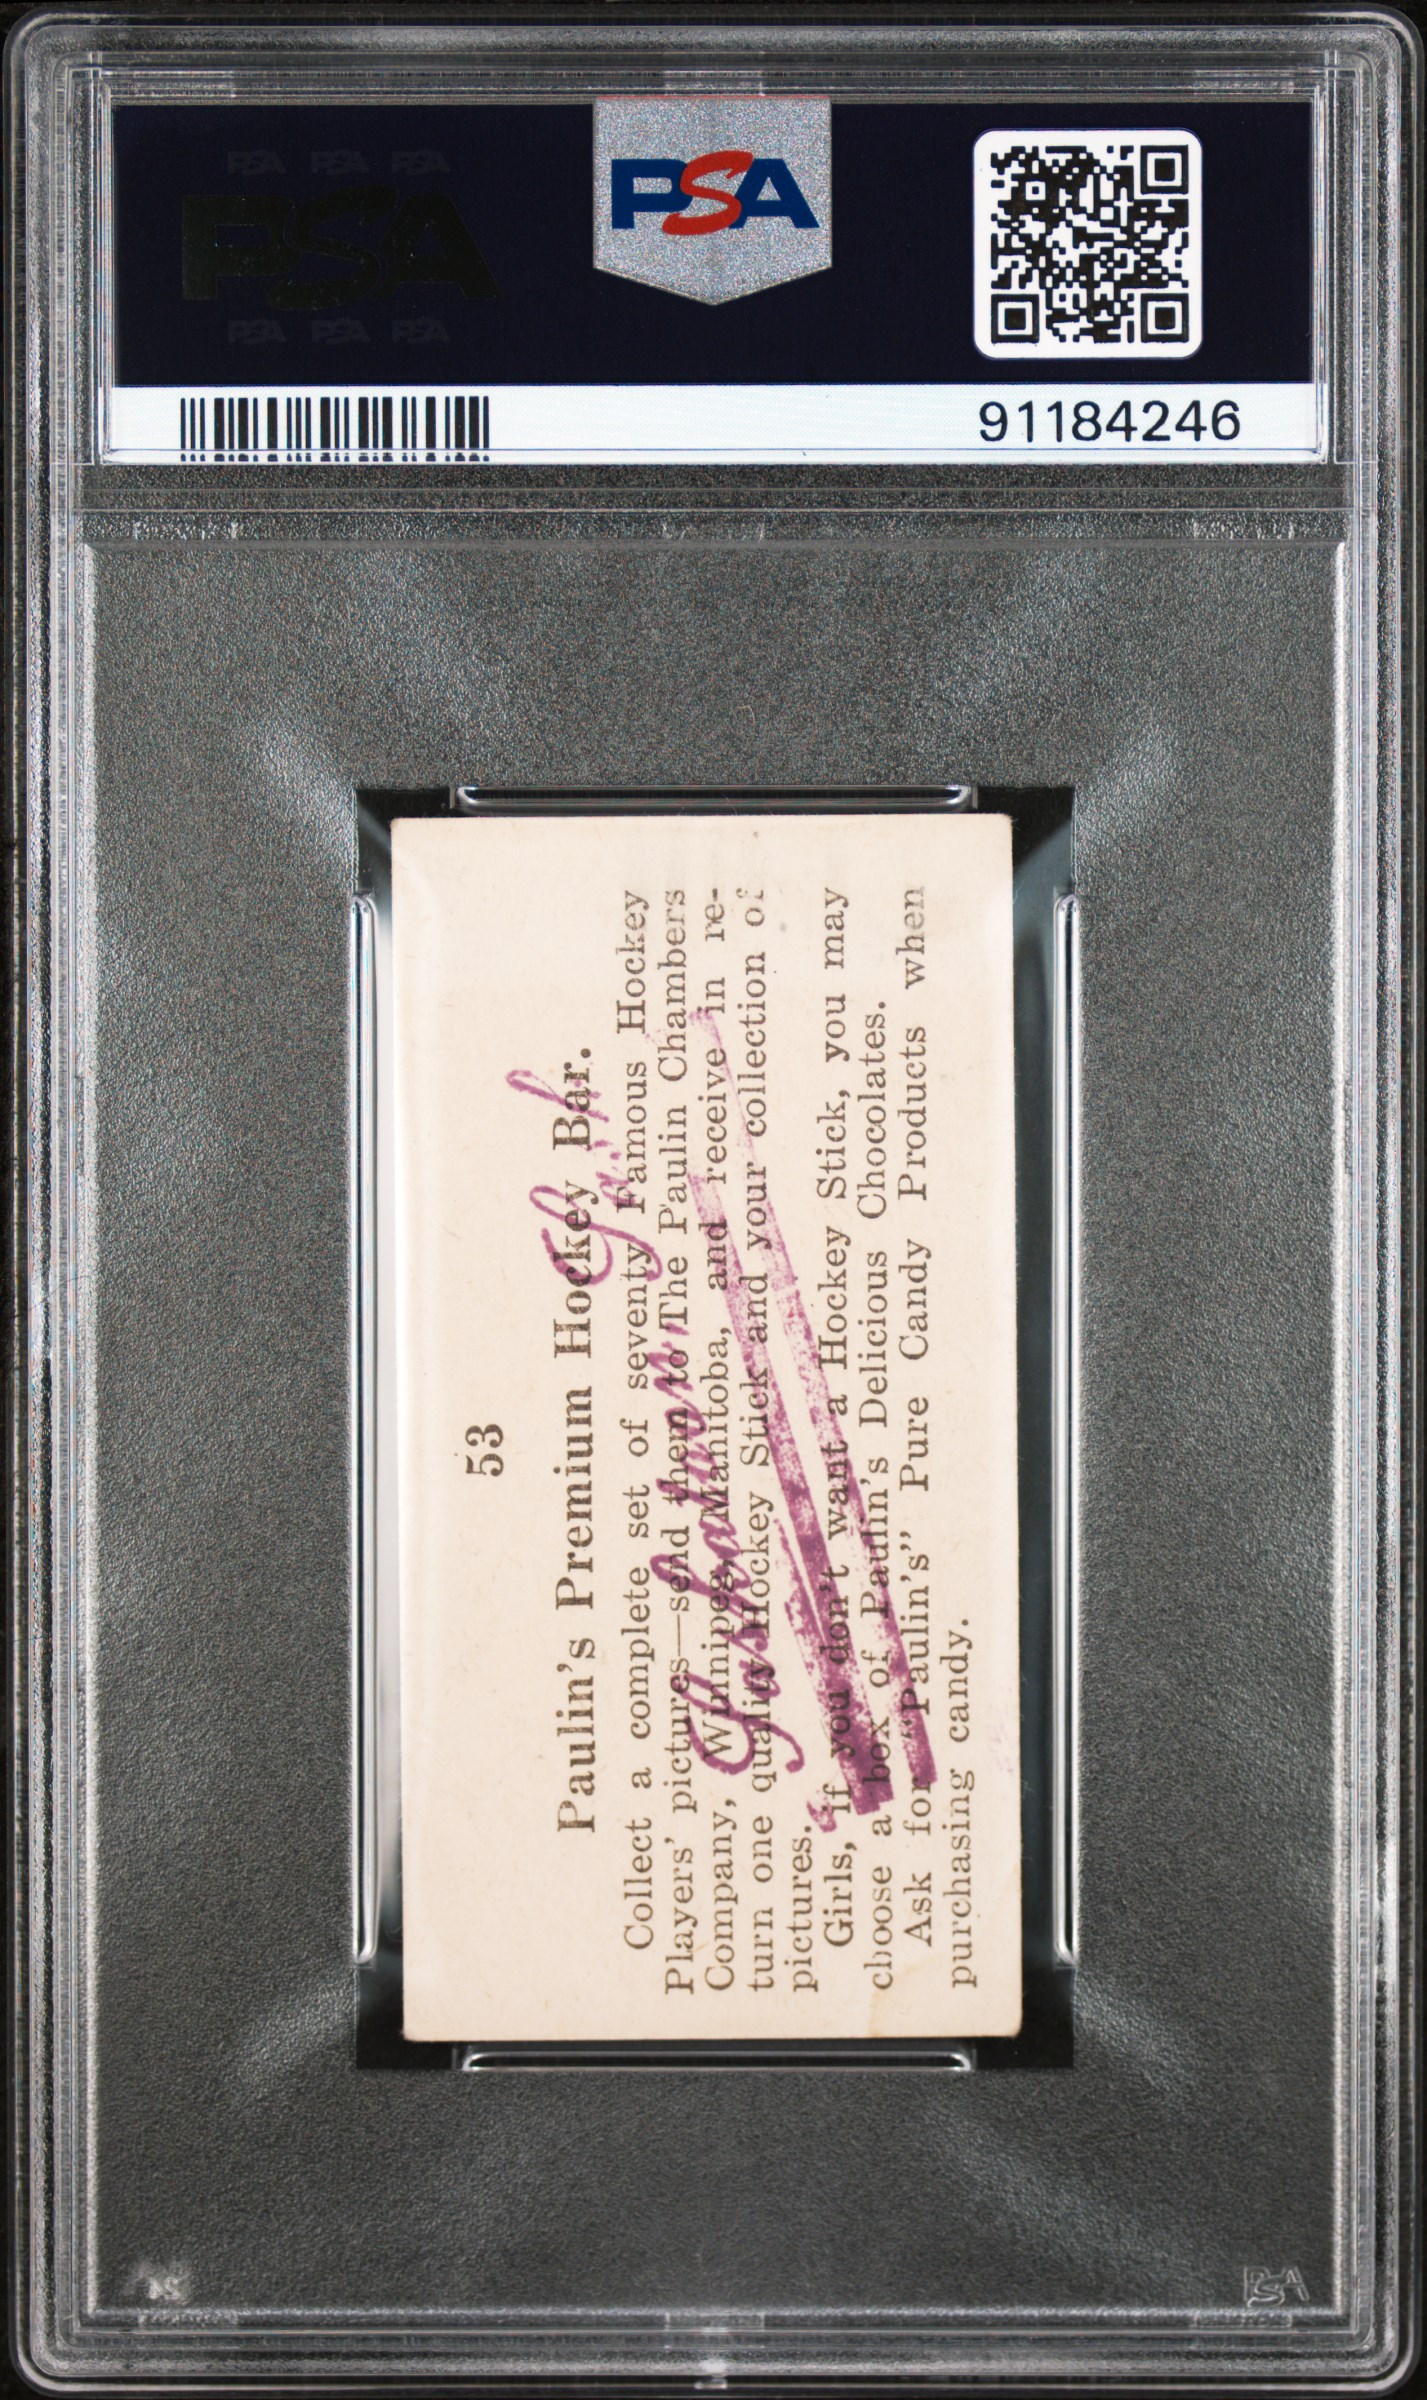 PSA PSA PSA
PSA
PSA PSA PSA
PSA
91184246
53
Paulin's Premium Hockey Bar.
Collect a complete set of seventy Famous Hockey
Players' pictures—send them to The Paulin Chambers
Company, Winnipeg, Manitoba, and receive in re-
turn one quality Hockey Stick and your collection of
pictures.
Girls, if you don't want a Hockey Stick, you may
choose a box of Paulin's Delicious Chocolates.
Ask for "Paulin's" Pure Candy Products when
purchasing candy.
Saskatoon
PSA